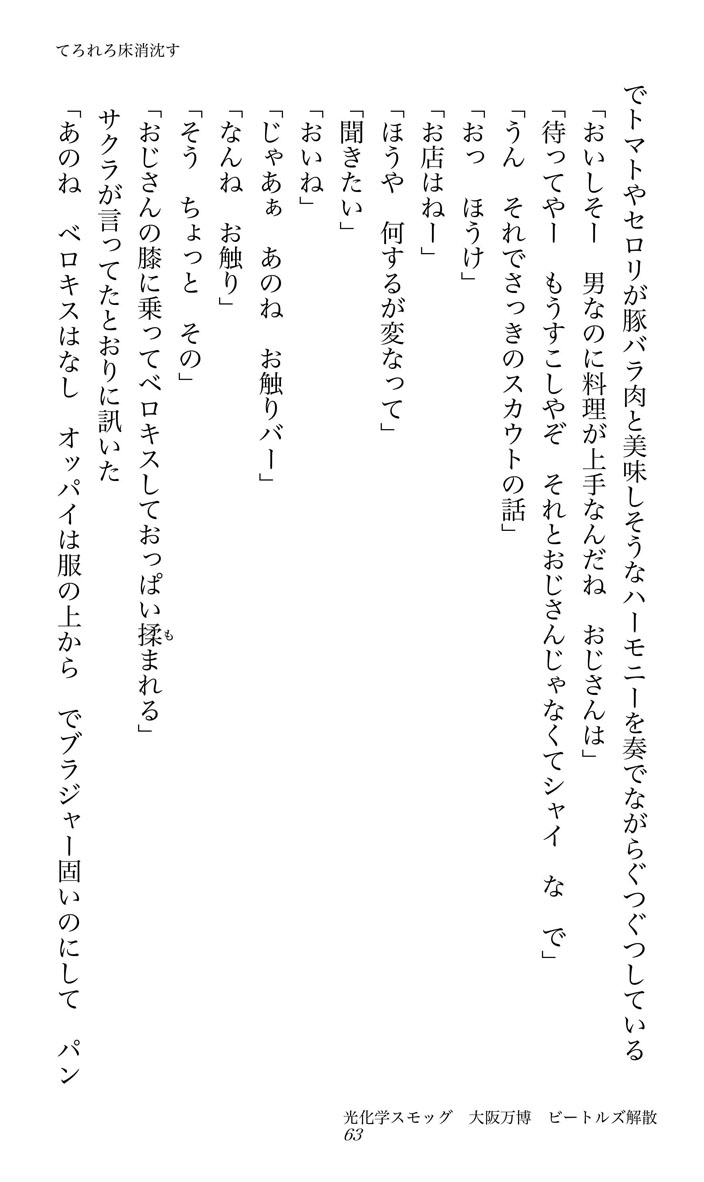 てろれろ床消沈す
でトマトやセロリが豚バラ肉と美味しそうなハーモニーを奏でながらぐつぐつしている
「おいしそー　男なのに料理が上手なんだね　おじさんは」
「待ってやー　もうすこしやぞ　それとおじさんじゃなくてシャイ　な　で」
「うん　それでさっきのスカウトの話」
「おっ　ほうけ」
「お店はねー」
「ほうや　何するが変なって」
「聞きたい」
「おいね」
「じゃあぁ　あのね　お触りバー」
「なんね　お触り」
「そう　ちょっと　その」
「おじさんの膝に乗ってベロキスしておっぱい揉まれる」
も
サクラが言ってたとおりに訊いた
「あのね　ベロキスはなし　オッパイは服の上から　でブラジャー固いのにして　パン
光化学スモッグ　大阪万博　ビートルズ解散
63